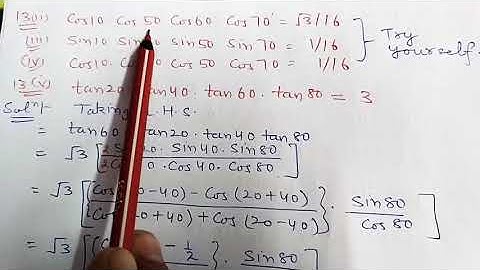 13(ii) Cos10 Cos50 Cos60 Cos70 = √3/16
(iii) Sin10 Sin50 Sin70 = 1/16 } Try yourself.
(iv) Cos10 Cos50 Cos70 = 1/16
13(v) tan20 · tan40 · tan60 · tan80 = 3
Soln: Taking L.H.S.
= tan60 · tan20 · tan40 tan80
= √3 [ Sin40 · Sin80 / Cos40 · Cos80 ]
= √3 [ {Cos( -40) - Cos(20+40)} / {Cos( +40) + Cos(20-40)} · Sin80 / Cos80 ]
= √3 [ - 1/2 } · Sin80